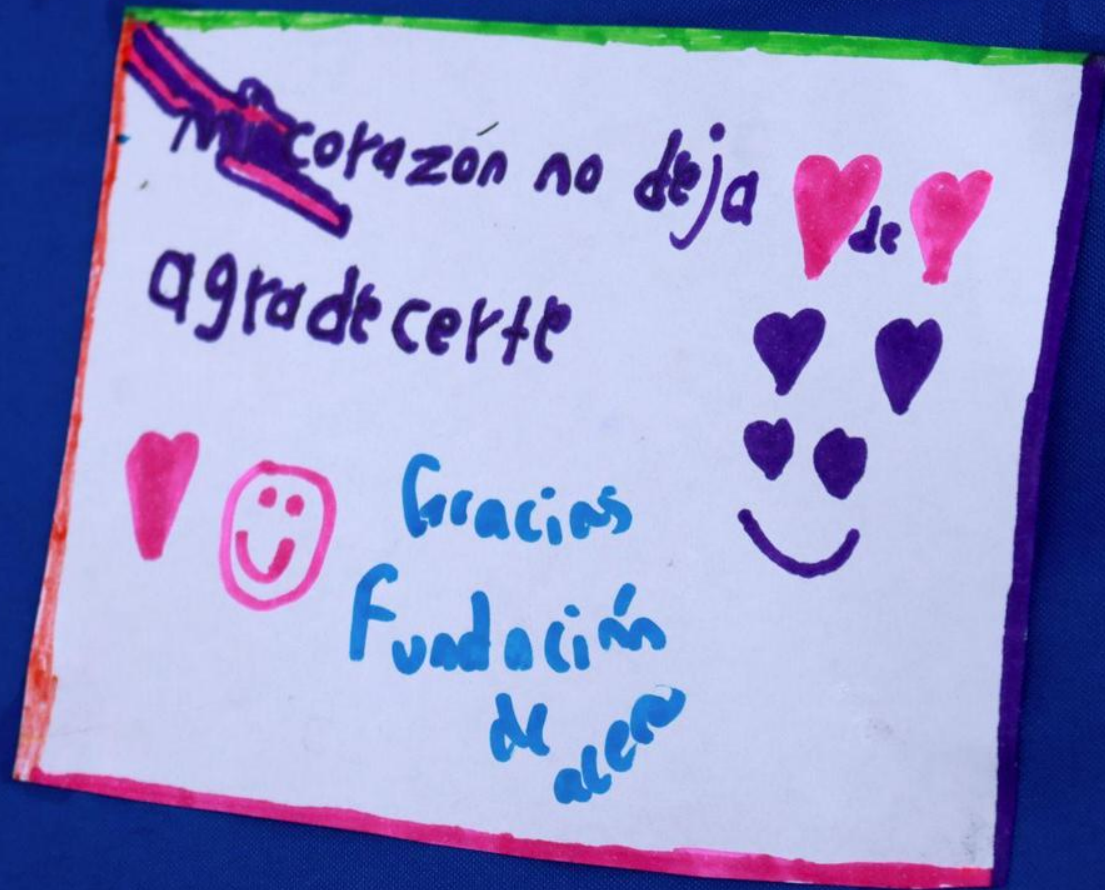 Mi corazón no deja de
agradecerte
Gracias
Fundación
de
acero